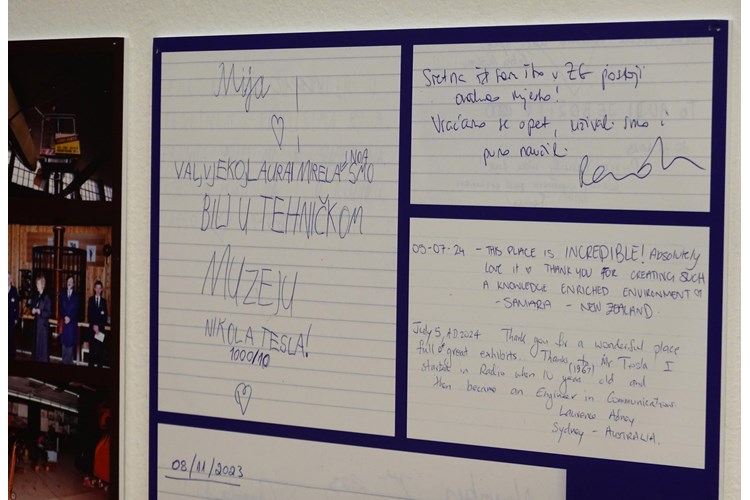 Mija
VAL, VJEKO, LAURA I MIRELA I NOA SMO
BILI U TEHNIČKOM
MUZEJU
NIKOLA TESLA!
1000/10
08/11/2023
Sretna što u ZG postoji
ovakvo mjesto!
Vraćamo se opet, uživali smo i
puno naučili.
09-07-24 - THIS PLACE IS INCREDIBLE! Absolutely
LOVE IT THANK YOU FOR CREATING SUCH
A KNOWLEDGE ENRICHED ENVIRONMENT
- SAMARA - NEW ZEALAND.
July 5, AD 2024 Thank you for a wonderful place
full of great exhibits. Thanks to Mr Tesla I
started in Radio when 10 years old (1967) and
then became an Engineer in Communications.
Laurence Adney
Sydney - AUSTRALIA.